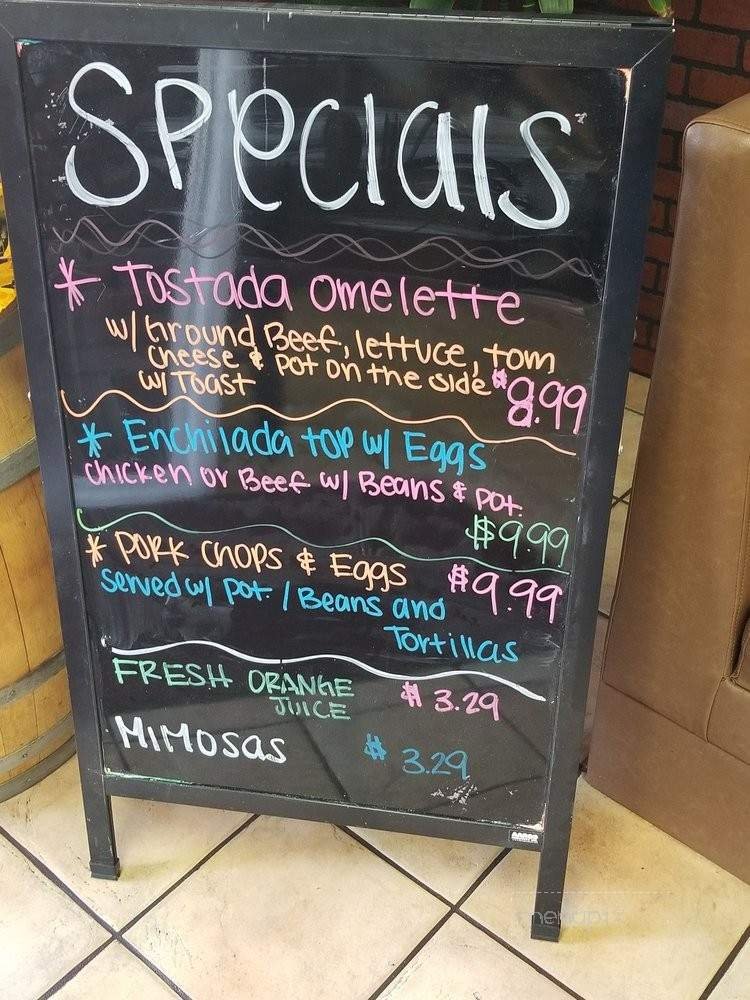 Specials
* Tostada Omelette
w/ Ground Beef, lettuce, tom
cheese & pot on the side
w/ Toast $8.99
* Enchilada top w/ Eggs
chicken or Beef w/ Beans & pot.
$9.99
* Pork Chops & Eggs $9.99
served w/ pot. / Beans and
Tortillas
FRESH ORANGE $3.29
JUICE
MIMOSAS $3.29